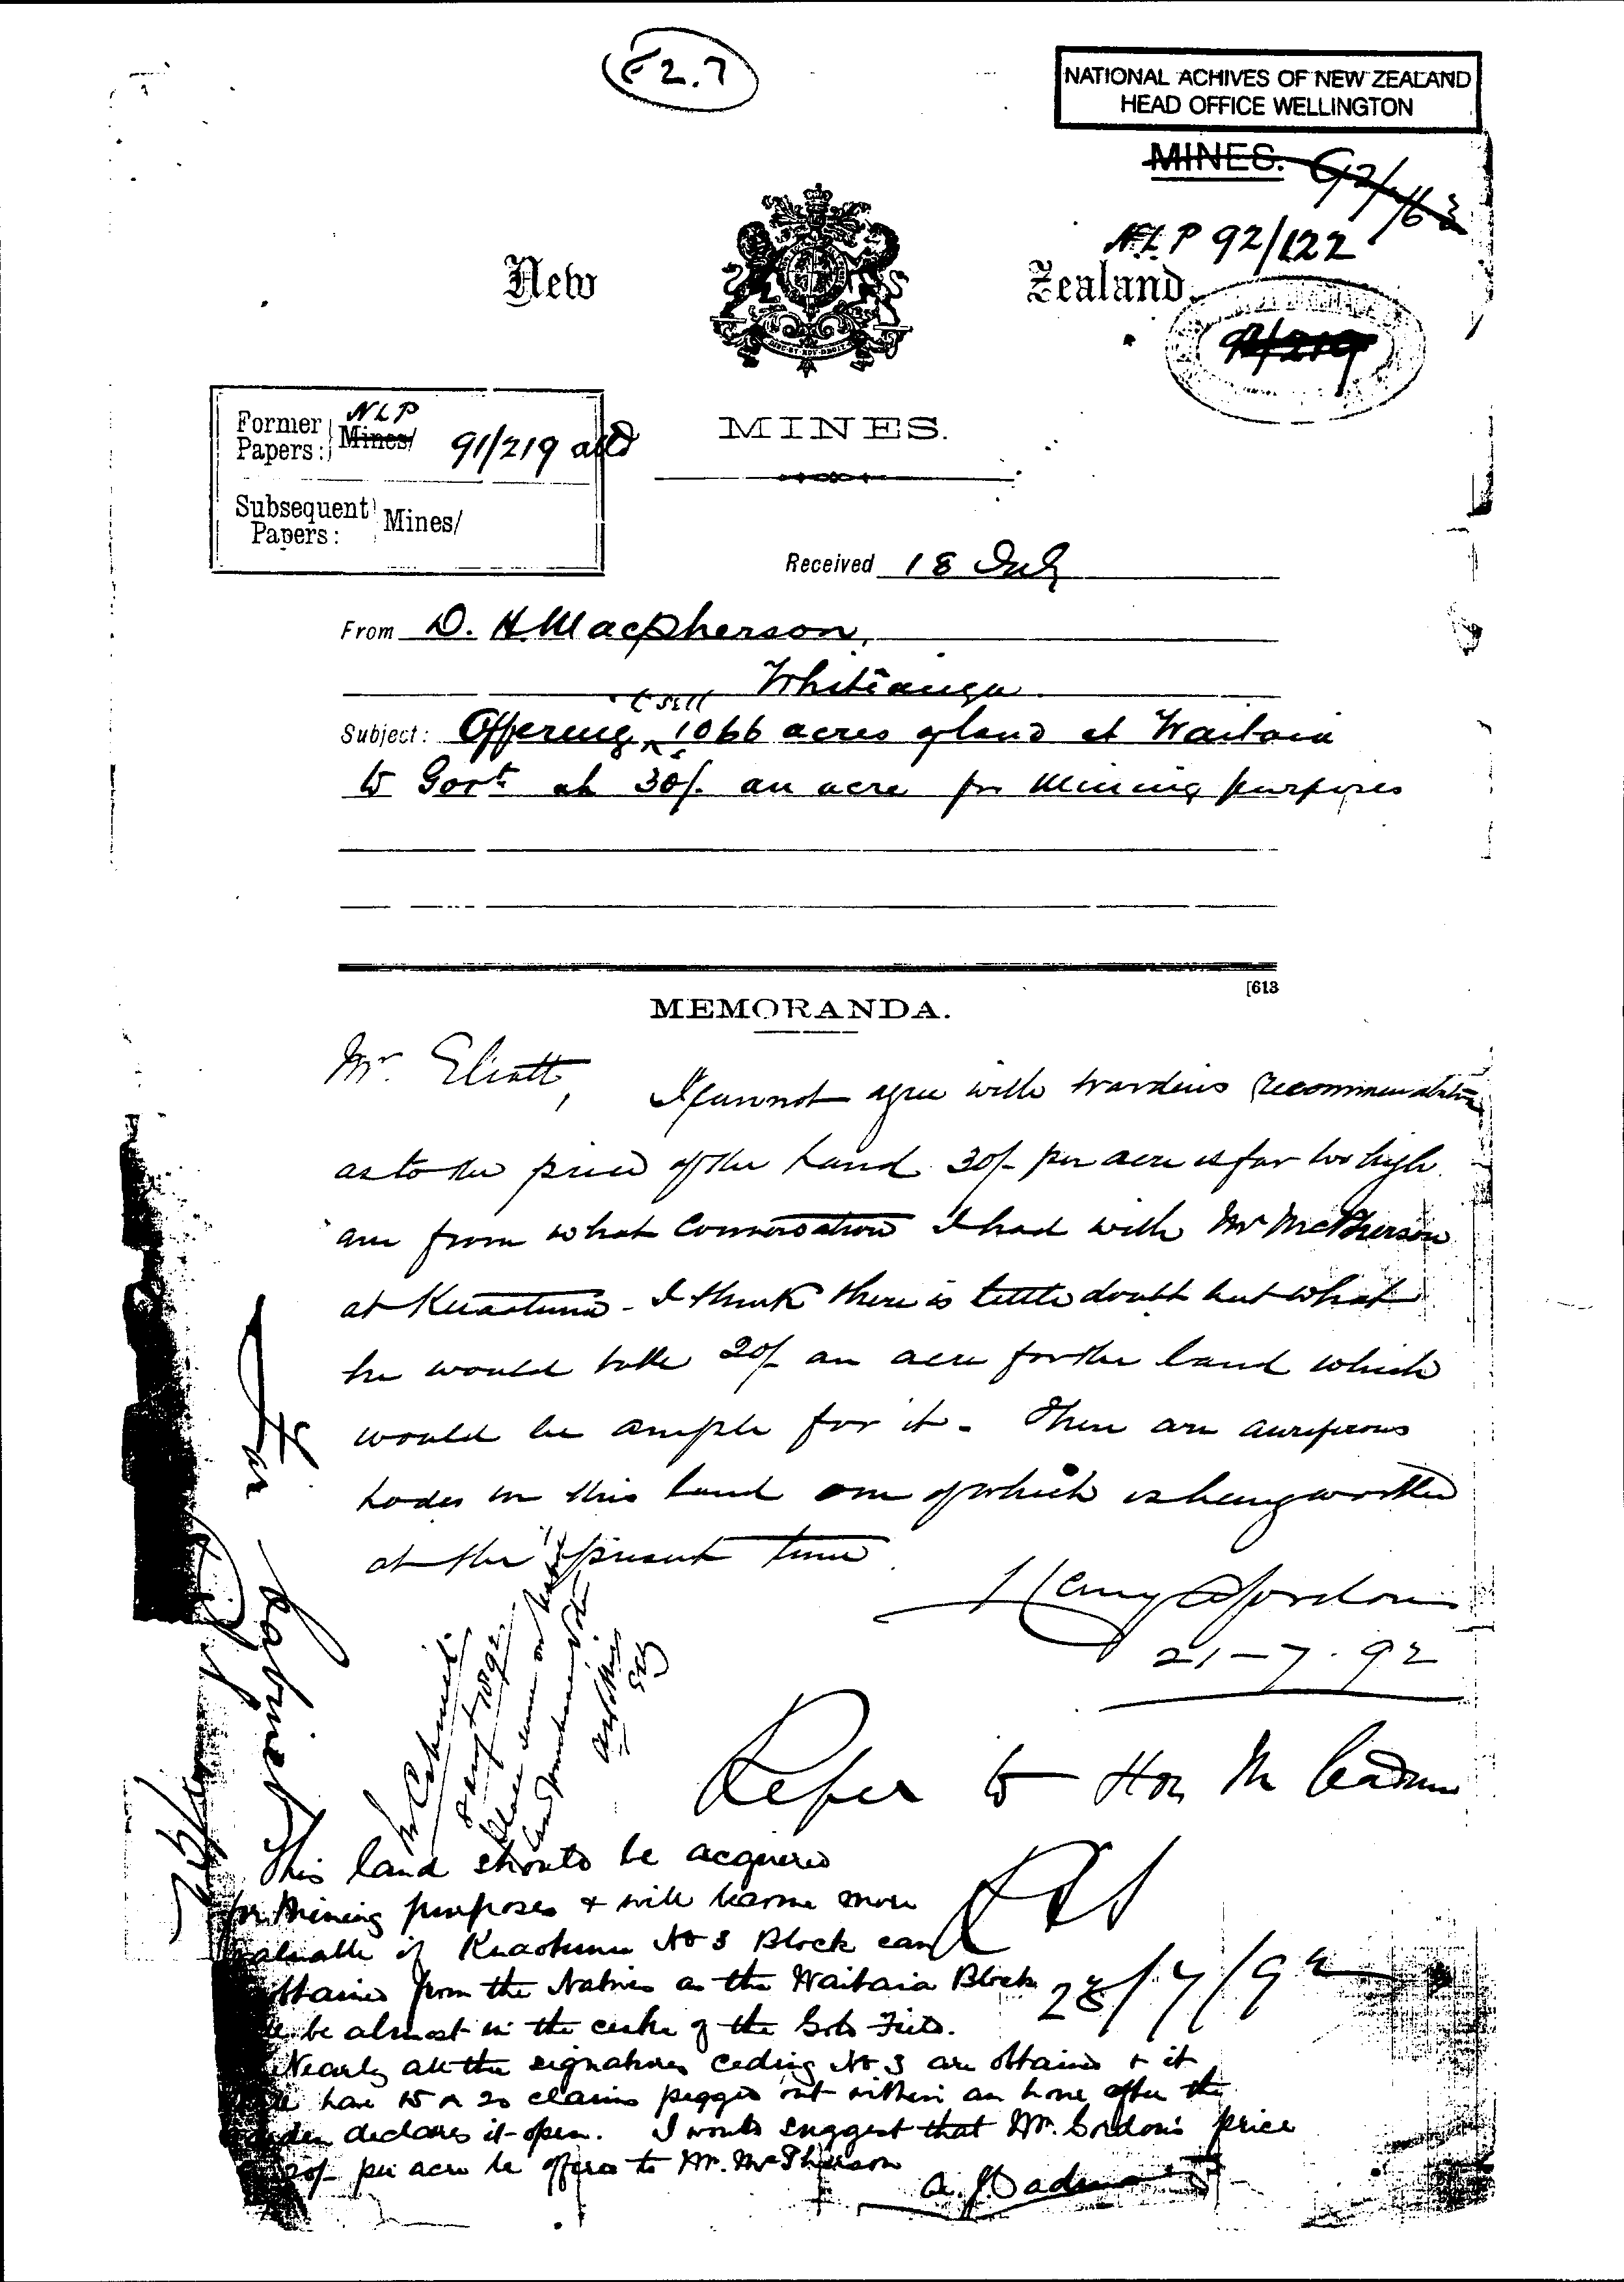 F 2.7
NATIONAL ACHIVES OF NEW ZEALAND
HEAD OFFICE WELLINGTON
MINES. 92/
NLP 92/122
New Zealand.
91/219
Former Papers: NLP Mines/ 91/219 attd
Subsequent Papers: Mines/
MINES.
Received 18 July
From D. H. Macpherson,
Whitianga
Subject: Offering to sell 1066 acres of land at Waitaia
to Govt at 30/- an acre for Mining purposes
[613
MEMORANDA.
Mr. Eliott,
I cannot agree with Wardens recommendation
as to the price of the Land 30/- per acre is far too high
and from what Conversation I had with Mr McPherson
at Kuaotunu - I think there is little doubt but what
he would take 20/- an acre for the land which
would be ample for it - There are auriferous
Lodes in this land one of which is being worked
at the present time
Henry A Gordon
21-7.92
Refer to Hon Mr Cadman
28/7/92
For Cabinet
In Cabinet
8 augt 1892
Please
This land should be acquired
for Mining purposes & will become more
valuable if Kuaotunu No 3 Block can
obtained from the Natives as the Waitaia Block
be almost in the centre of the Gold Field.
Nearly all the signatures ceding No 3 are obtained & it
have 15 or 20 claims pegged out within an hour after the
Warden declares it open. I would suggest that Mr. Gordon's price
20/- per acre be offered to Mr. McPherson
A. J Cadman